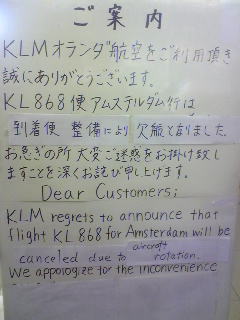 ご案内
KLMオランダ航空をご利用頂き
誠にありがとうございます。
KL868便アムステルダム行は
到着便 整備により 欠航となりました。
お急ぎの所 大変ご迷惑をお掛け致し
ますことを深くお詫び申し上げます。
Dear Customers;
KLM regrets to announce that
flight KL868 for Amsterdam will be
canceled due to aircraft rotation.
We appologize for the inconvenience